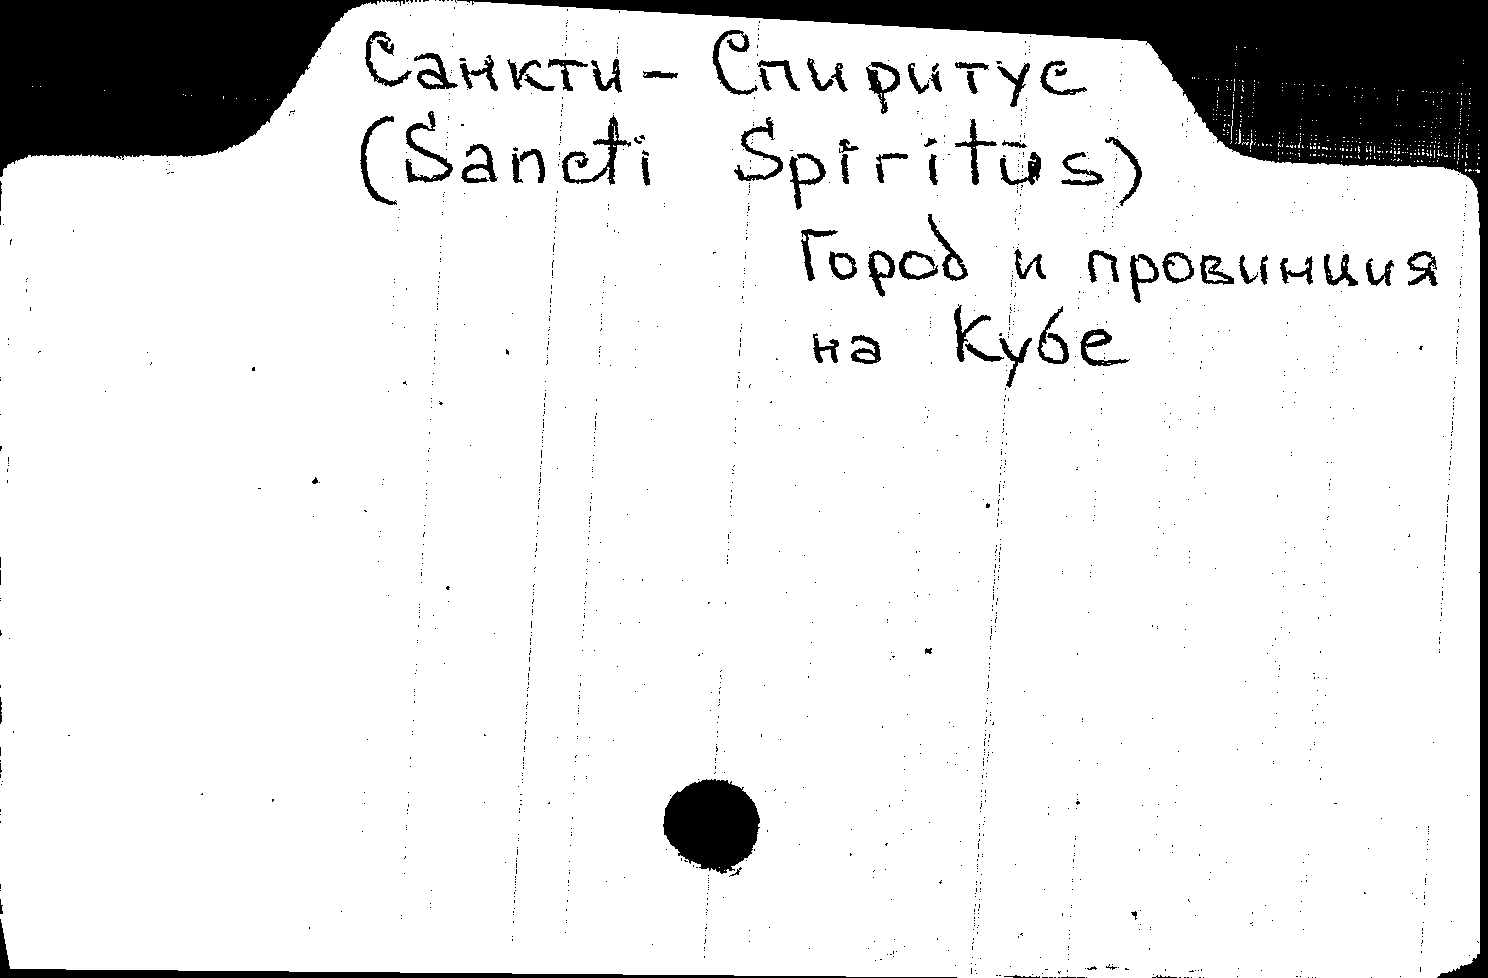 Санкти - Спиритус
(Sancti Spiritus)
Город и провинция
на Кубе